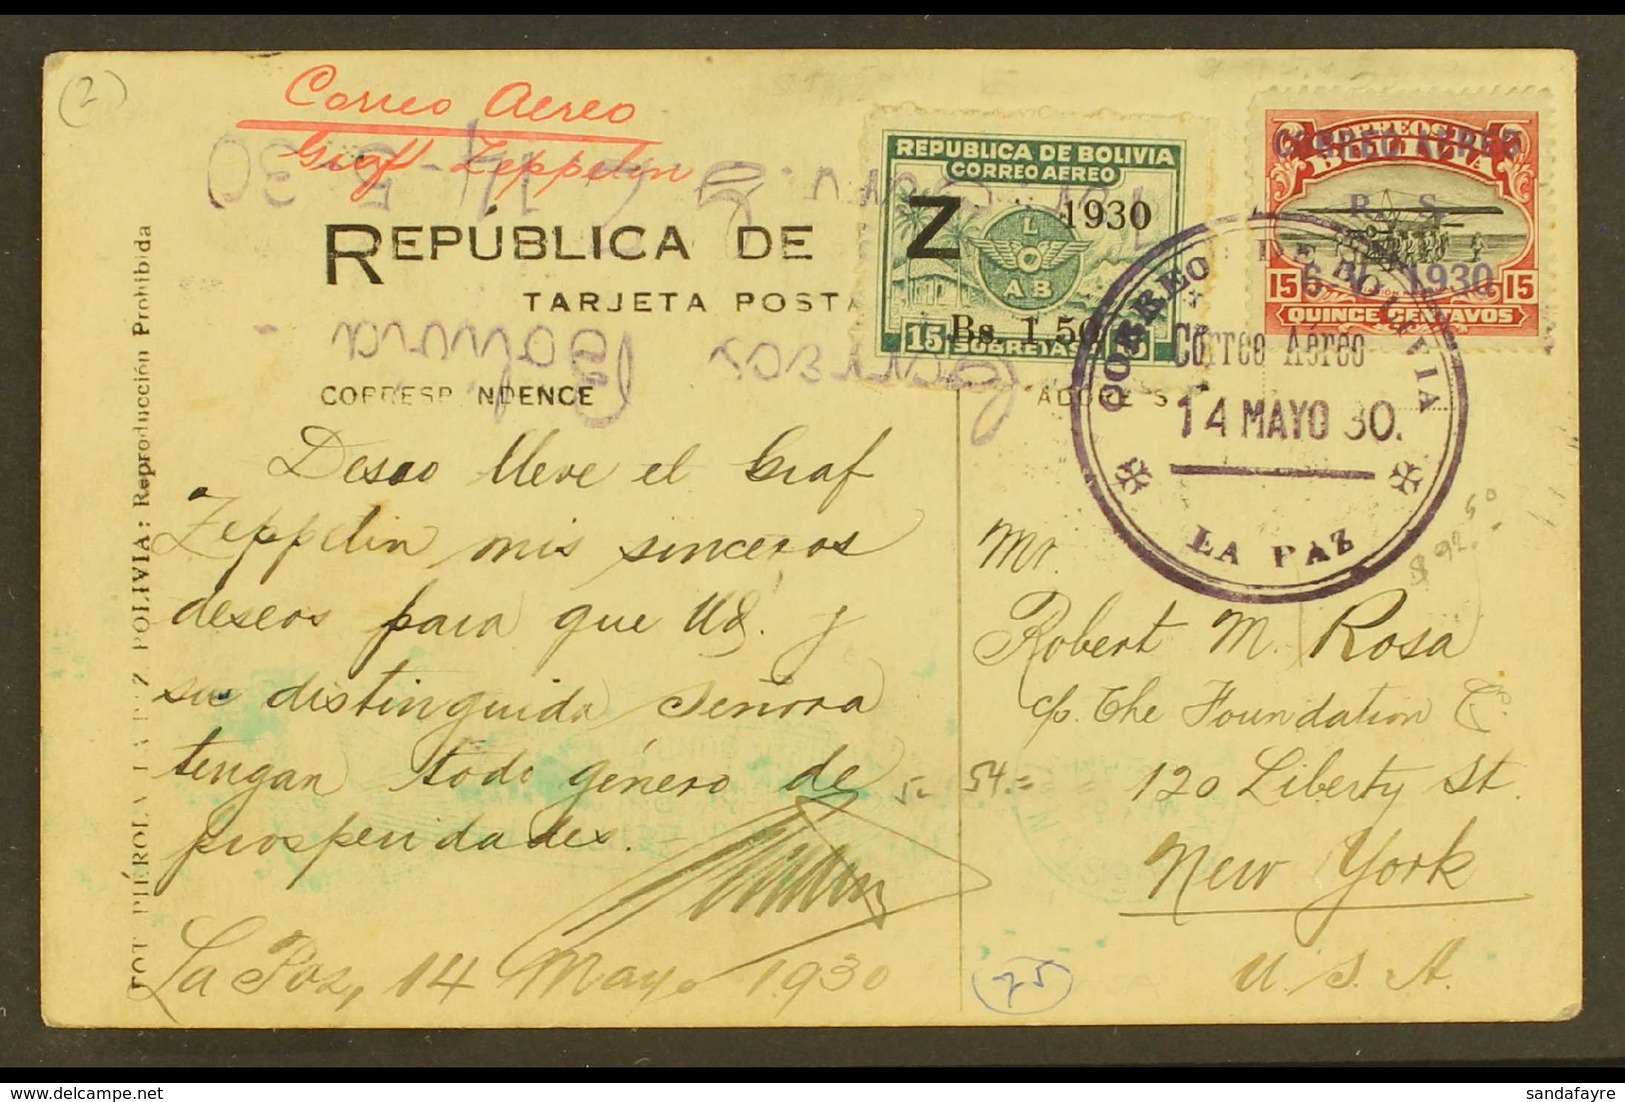 (2)
Correo Aereo
Graf Zeppelin
14-5-30
REPÚBLICA DE
TARJETA POSTA
CORRESP NDENCE
ADDRE S
REPUBLICA DE BOLIVIA
CORREO AEREO
Z
1930
L
A B
Bs. 1.50
15
SOBRETASA
CORREO AEREO
R. S.
1930
15
15
QUINCE CENTAVOS
CORREO DE BOLIVIA
Correo Aéreo
14 MAYO 30.
LA PAZ
Deseo lleve el Graf
Zeppelin mis sinceros
deseos para que Ud. y
su distinguida Señora
tengan todo género de
prosperidades.
La Paz, 14 Mayo 1930
Mr.
Robert M. Rosa
c/o. The Foundation Co.
120 Liberty St.
New York
U. S. A.
$ 92.50
54.=
75
FOT. PIÉROLA LA PAZ BOLIVIA: Reproducción Prohibida
sandafayre